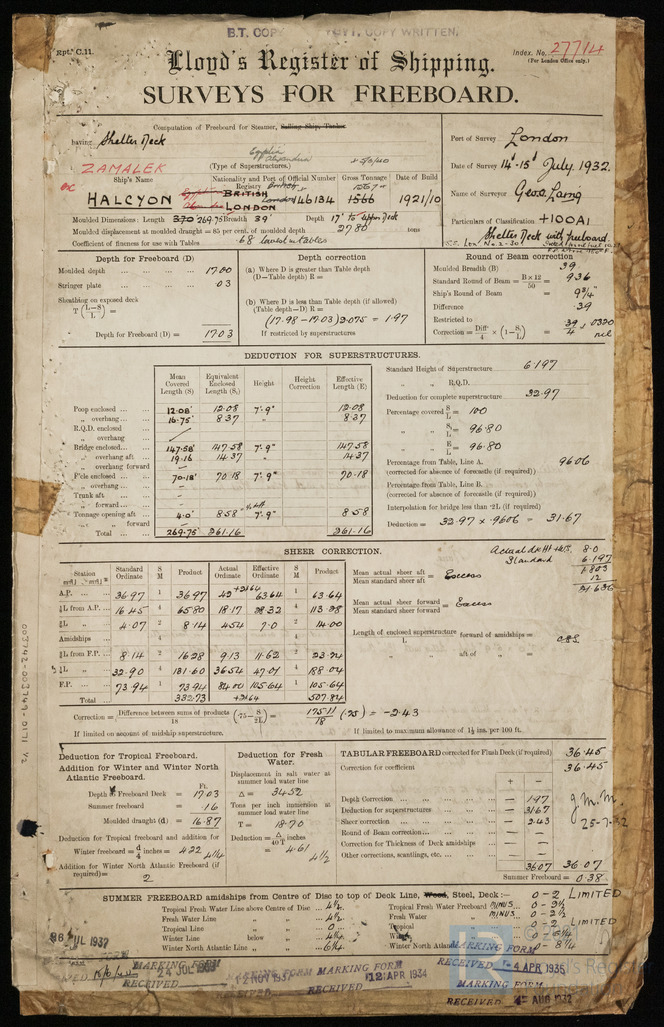 B.T. COPY WRITTEN.
Rpt. C.11.
Index. No. 27714
(For London Office only.)
Lloyd's Register of Shipping.
SURVEYS FOR FREEBOARD.
Computation of Freeboard for Steamer, Sailing Ship, Tanker
having Shelter Deck
(Type of Superstructures.)
Port of Survey London
Date of Survey 14th-15th July, 1932.
Name of Surveyor Geo. Laing
Particulars of Classification +100A1
Shelter Deck with freeboard
ZAMALEK
Ship's Name
ex HALCYON
Nationality and Port of Registry
BRITISH
LONDON
Official Number
146134
Gross Tonnage
1566
Date of Build
1921/10
Moulded Dimensions: Length 370' 269.75 Breadth 39' Depth 17' to upper Deck
Moulded displacement at moulded draught = 85 per cent. of moulded depth 2780 tons
Coefficient of fineness for use with Tables .68 lowest in tables
Depth for Freeboard (D)
Moulded depth 17.00
Stringer plate .03
Sheathing on exposed deck
T(L-S/L) =
Depth for Freeboard (D) = 17.03
Depth correction
(a) Where D is greater than Table depth
(D-Table depth) R =
(b) Where D is less than Table depth (if allowed)
(Table depth-D) R =
(17.98-17.03) 2.075 = 1.97
If restricted by superstructures
Round of Beam correction
Moulded Breadth (B) 39
Standard Round of Beam = B×12/50 = 9.36
Ship's Round of Beam = 9 3/4"
Difference .39
Restricted to
Correction = Diff/4 × (1-S/L) = .39/4 × .0320 nil
DEDUCTION FOR SUPERSTRUCTURES.
Mean Covered Length (S) Equivalent Enclosed Length (S₁) Height Height Correction Effective Length (E)
Poop enclosed 12.08' 12.08 7'.9" 12.08
" overhang 16.75' 8.37 " 8.37
R.Q.D. enclosed
" overhang
Bridge enclosed 147.58' 147.58 7'.9" 147.58
" overhang aft 19.16 14.37 14.37
" overhang forward
F'cle enclosed 70.18' 70.18 7'.9" 70.18
" overhang
Trunk aft
" forward
Tonnage opening aft 4.0' 8.58 7'.9" 8.58
" " forward
Total 269.75 261.16 261.16
Standard Height of Superstructure 6.197
" " R.Q.D.
Deduction for complete superstructure 32.97
Percentage covered S/L = 100
" " S₁/L = 96.80
" " E/L = 96.80
Percentage from Table, Line A. 96.06
(corrected for absence of forecastle (if required))
Percentage from Table, Line B.
(corrected for absence of forecastle (if required))
Interpolation for bridge less than ·2L (if required)
Deduction = 32.97 × .9606 = 31.67
SHEER CORRECTION.
Station Standard Ordinate S M Product Actual Ordinate Effective Ordinate S M Product
A.P. 36.97 1 36.97 42 +21.64 63.64 1 63.64
⅙L from A.P. 16.45 4 65.80 18.17 28.32 4 113.28
⅓L " 4.07 2 8.14 4.54 7.0 2 14.00
Amidships 4 4
⅓L from F.P. 8.14 2 16.28 9.13 11.62 2 23.24
⅙L " 32.90 4 131.60 36.54 47.01 4 188.04
F.P. 73.94 1 73.94 84.00 105.64 1 105.64
Total 332.73 +21.64 507.84
Mean actual sheer aft / Mean standard sheer aft = Excess
Mean actual sheer forward / Mean standard sheer forward = Excess
Length of enclosed superstructure / L forward of amidships =
" " aft of " =
Standard 6.197
1.803
12
21.636
Correction = Difference between sums of products/18 (·75-S/2L) = 175.11/18 (.75) = -2.43
If limited on account of midship superstructure.
If limited to maximum allowance of 1½ ins. per 100 ft.
Deduction for Tropical Freeboard.
Addition for Winter and Winter North Atlantic Freeboard.
Ft.
Depth Freeboard Deck = 17.03
Summer freeboard = .16
Moulded draught (d) = 16.87
Deduction for Tropical freeboard and addition for
Winter freeboard = d/4 inches = 4.22 4 1/4
Addition for Winter North Atlantic Freeboard (if required) = 2
Deduction for Fresh Water.
Displacement in salt water at summer load water line
Δ = 3452
Tons per inch immersion at summer load water line
T = 18.70
Deduction = Δ/40T inches
= 4.61
4 1/2
TABULAR FREEBOARD corrected for Flush Deck (if required) 36.45
Correction for coefficient 36.45
+ -
Depth Correction — 1.97
Deduction for superstructures — 31.67
Sheer correction — 2.43
Round of Beam correction —
Correction for Thickness of Deck amidships —
Other corrections, scantlings, etc. —
36.07 36.07
Summer Freeboard = 0.38
J.M.M.
25-7-32
SUMMER FREEBOARD amidships from Centre of Disc to top of Deck Line, Wood, Steel, Deck:— 0 - 2 LIMITED
Tropical Fresh Water Line above Centre of Disc 4½
Fresh Water Line " " 4½
Tropical Line " " 0
Winter Line below " 4¼
Winter North Atlantic Line " " 6¼
Tropical Fresh Water Freeboard MINUS 0 - 2½
Fresh Water " MINUS 0 - 2½
Tropical " 0 - 2 LIMITED
Winter " 0 - 6¼
Winter North Atlantic " 0 - 8¼
MARKING FORM
RECEIVED
24 JUL 1933
MARKING FORM
RECEIVED
MARKING FORM
RECEIVED 12 APR 1934
MARKING FORM
RECEIVED 4 APR 1935
MARKING FORM
RECEIVED
003742-003749-0171 1/2